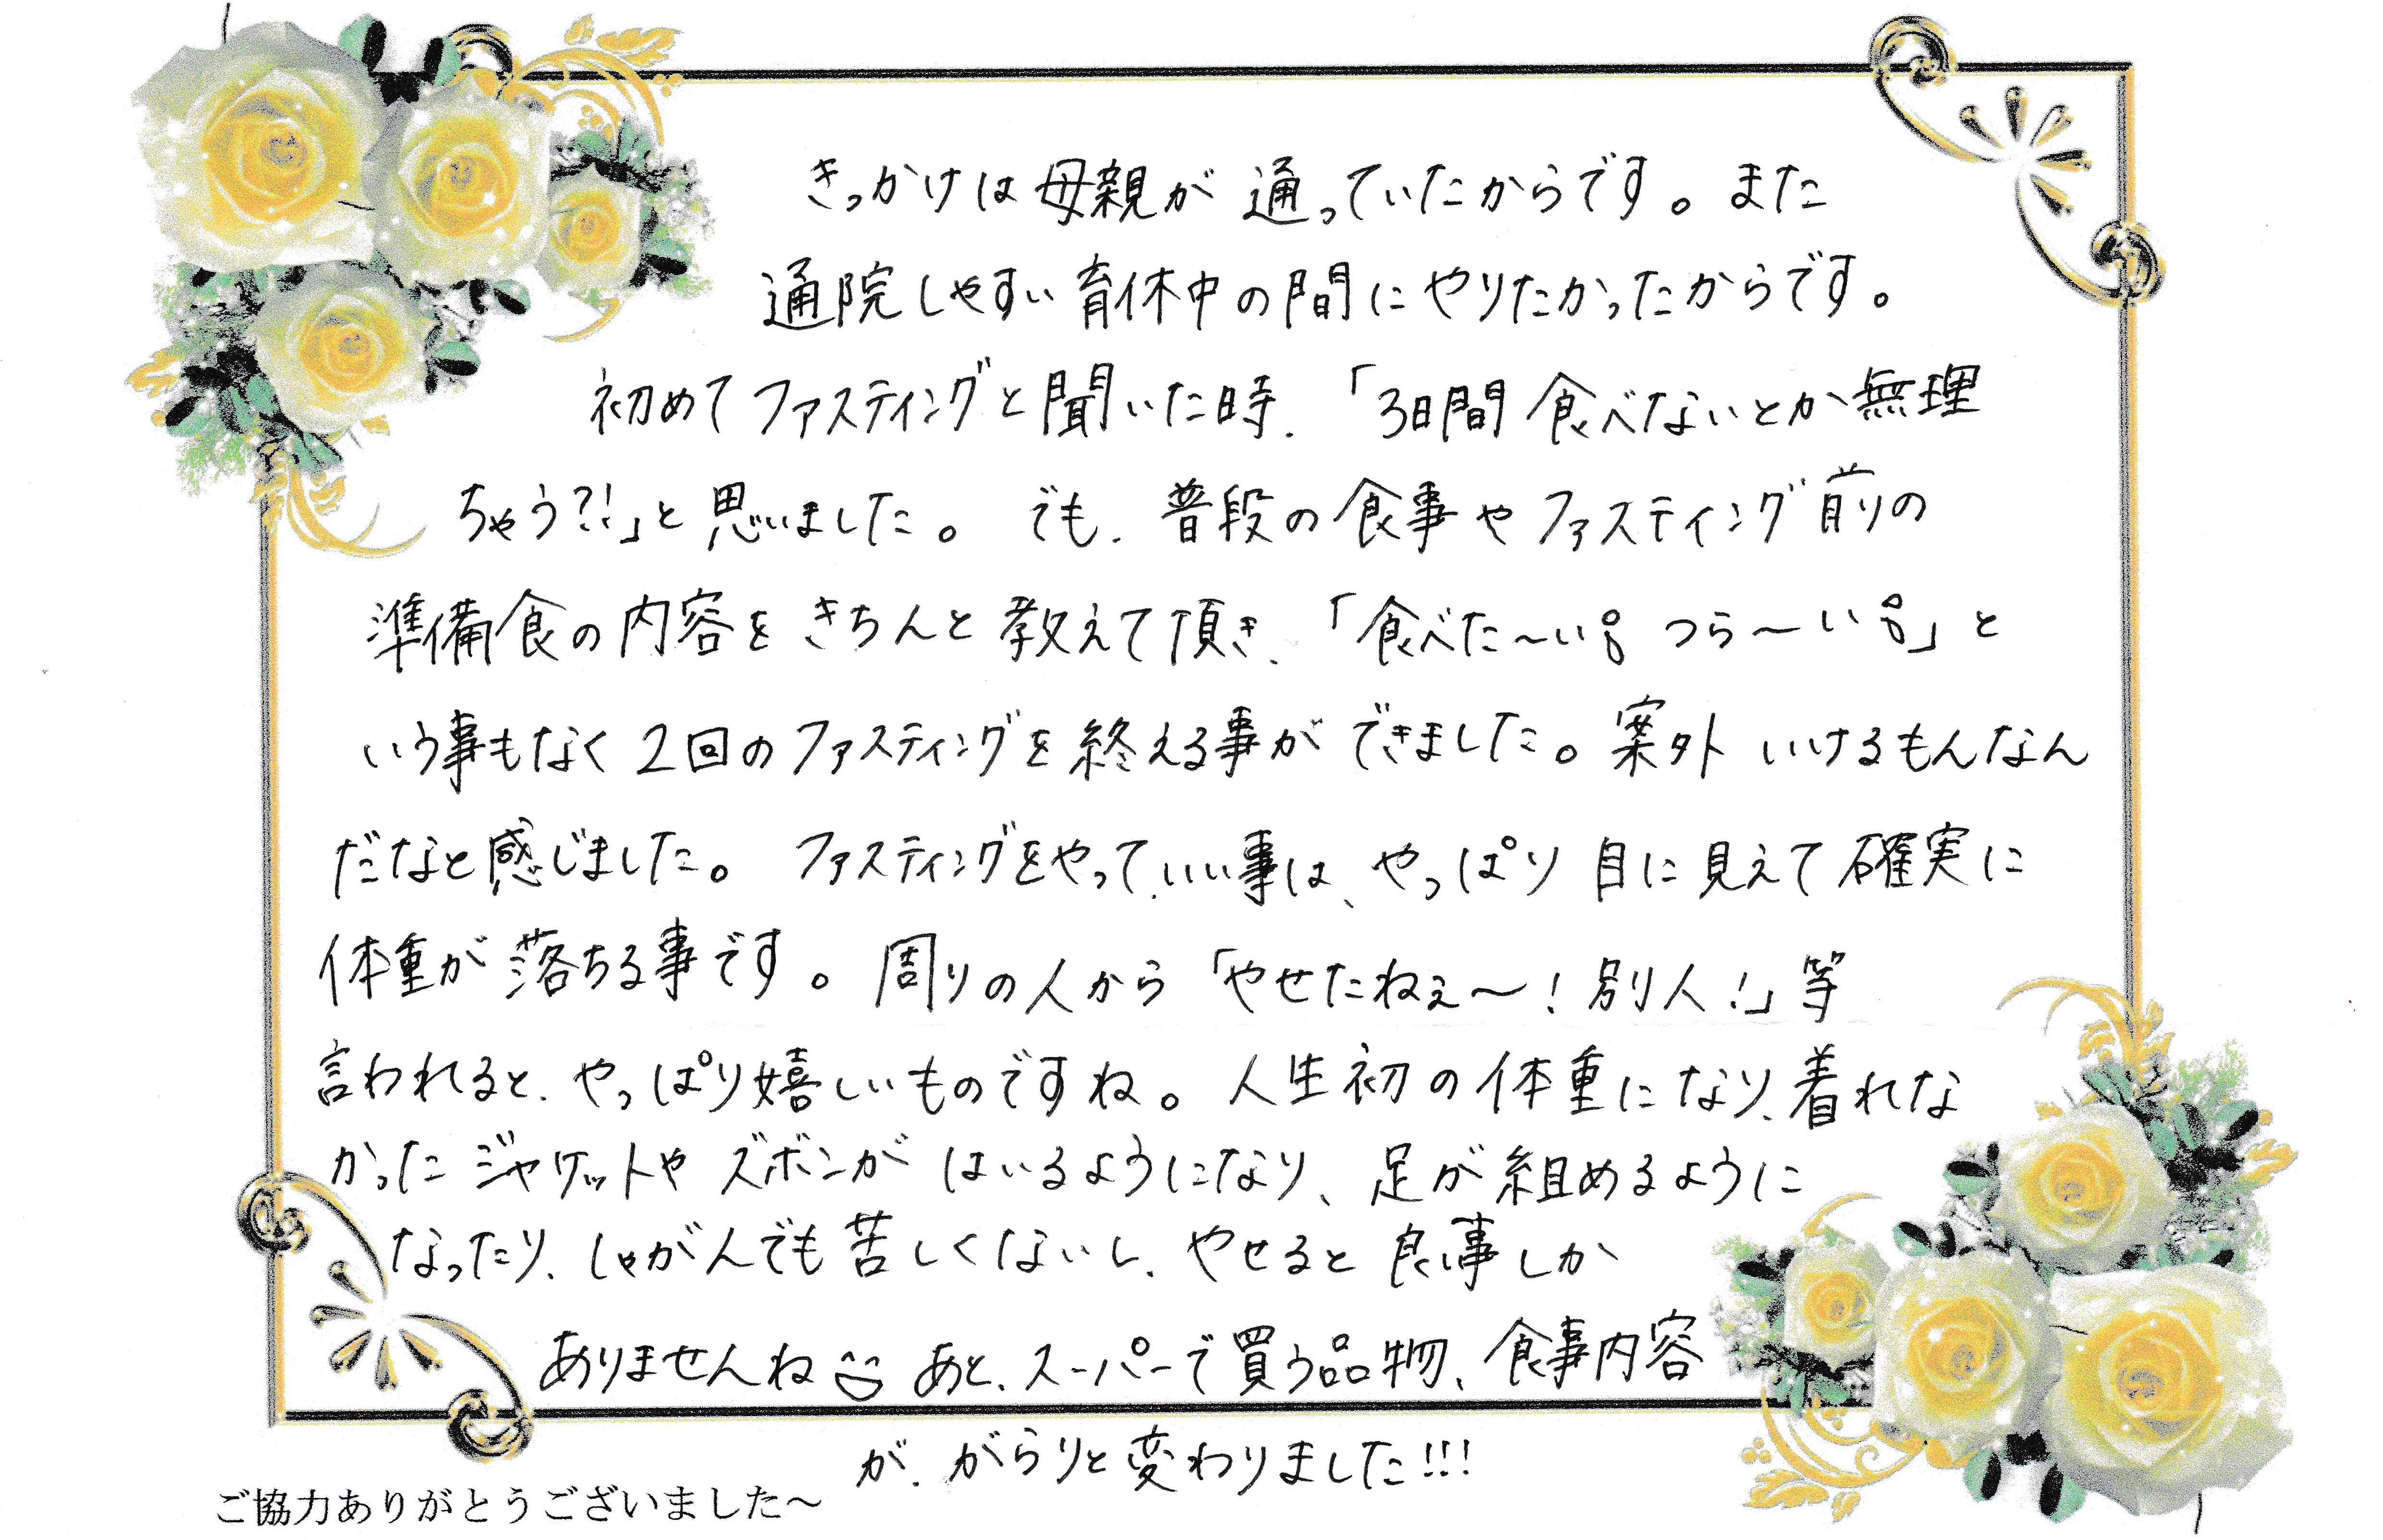 きっかけは母親が通っていたからです。また
通院しやすい育休中の間にやりたかったからです。
初めてファスティングと聞いた時、「3日間食べないとか無理
ちゃう?!」と思いました。でも、普段の食事やファスティング前の
準備食の内容をきちんと教えて頂き、「食べた〜い つら〜い」と
いう事もなく2回のファスティングを終える事ができました。案外いけるもんなん
だなと感じました。ファスティングをやって、いい事は、やっぱり目に見えて確実に
体重が落ちる事です。周りの人から「やせたねぇ〜!別人!」等
言われると、やっぱり嬉しいものですね。人生初の体重になり、着れな
かったジャケットやズボンがはいるようになり、足が組めるように
なったり、しゃがんでも苦しくないし、やせると良い事しか
ありませんね あと、スーパーで買う品物、食事内容
が、がらりと変わりました!!!
ご協力ありがとうございました〜